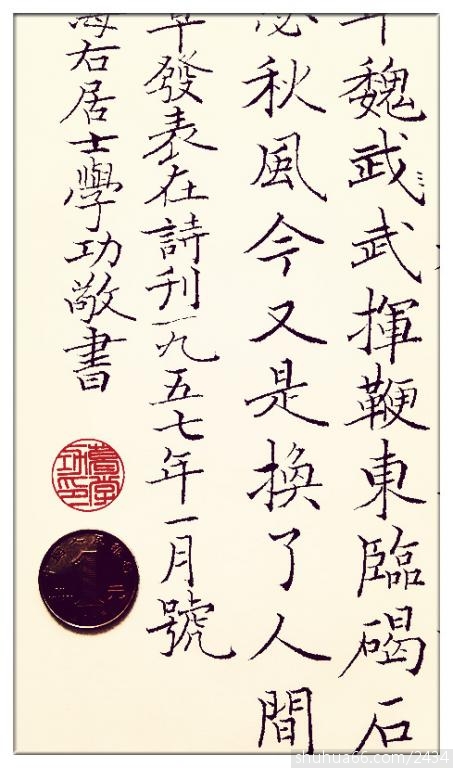 年魏武武揮鞭東臨碣石
瑟秋風今又是換了人間
發表在詩刊一九五七年一月號
海右居士學功敬書
1
元
shuhua66.com/2434